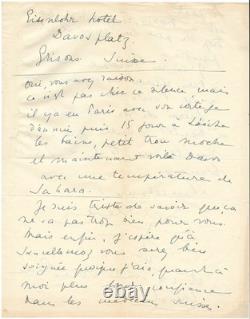 Eisenlohr Hotel
Davos Platz
Grisons Suisse
Oui, vous avez raison
ce n'est pas chic ce silence, mais
il y a eu Paris avec son cortège
d'ennuis puis 15 jours à Loèche
les bains, petit trou moche
et maintenant voilà Davos
avec une température de
Sahara.
Je suis triste de savoir que ça
ne va pas très bien pour vous.
Mais enfin, j'espère qu'à
vous serez bien
soignée puisque j'ai, quant à
moi plus confiance
dans les médecins suisses.
ebay.com